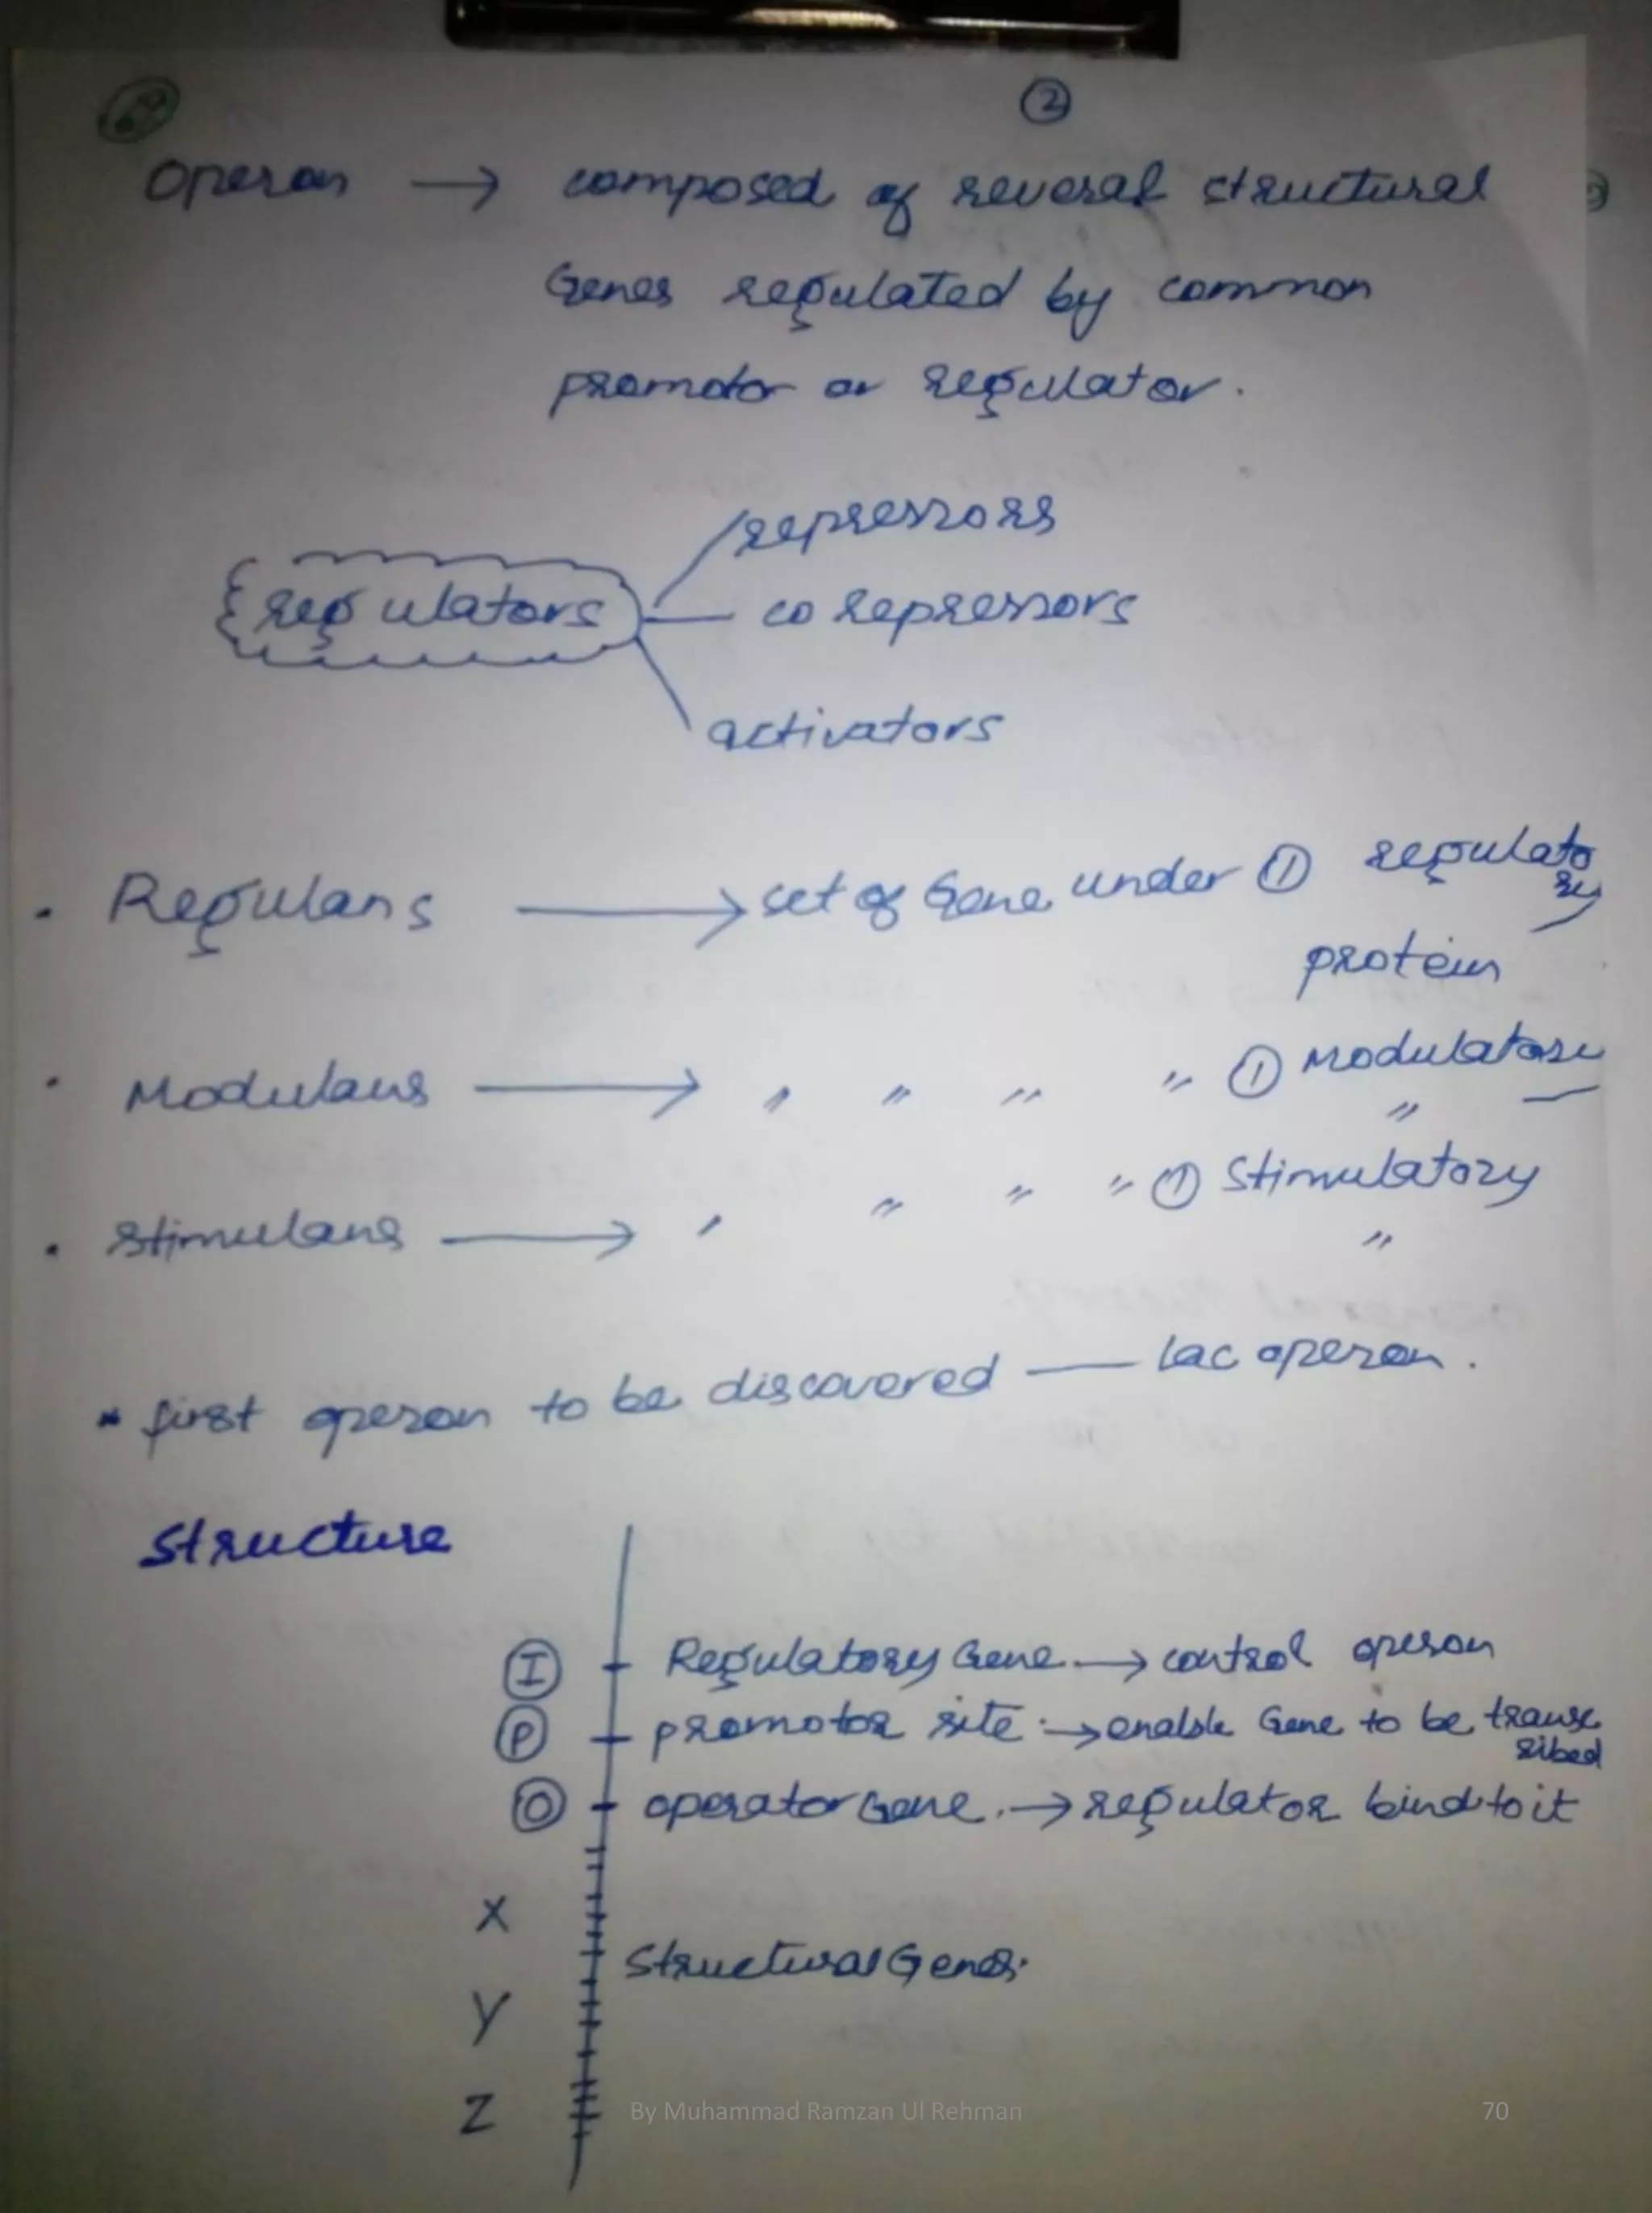 ②
Operon → composed of several structural
Genes regulated by common
promotor or regulator.
repressors
regulators
co repressors
activators
• Regulans → set of Gene under ① regulatory
protein
• Modulans → " " " " ① Modulatory
"
• Stimulans → " " " " ① Stimulatory
"
* first operon to be discovered — lac operon.
Structure
I Regulatory Gene → control operon
P promotor site → enable Gene to be transcribed
O operator Gene → regulator bind to it
X
Structural Genes.
Y
Z
By Muhammad Ramzan Ul Rehman 70